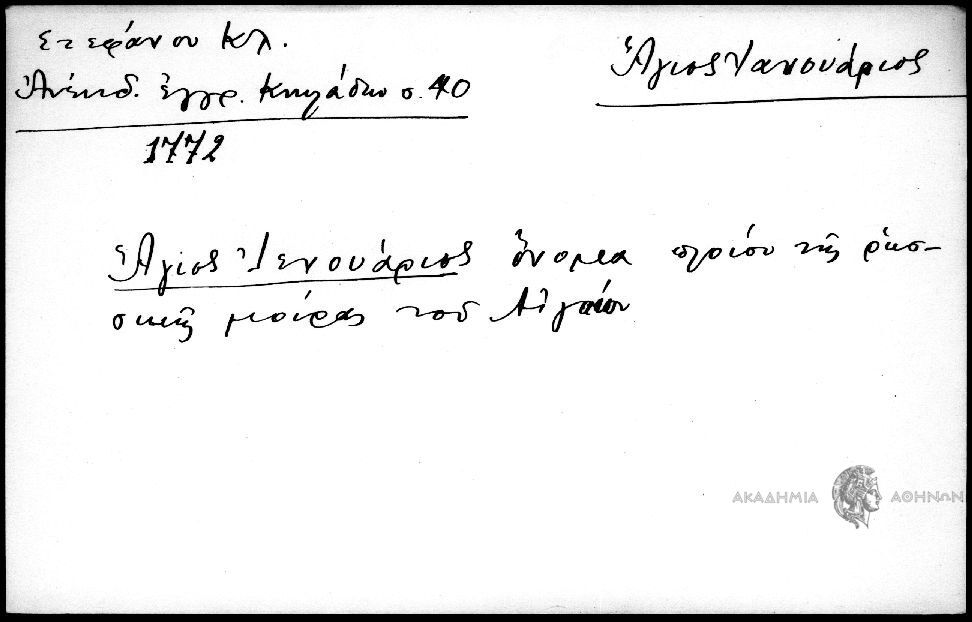 Στεφάνου Κλ.
Ἀνέκδ. ἔγγρ. Κυκλάδων σ. 40
1772
Ἅγιος Ἰανουάριος
Ἅγιος Ἰενουάριος ὄνομα πλοίου τῆς ρωσ-
σικῆς μοίρας τοῦ Αἰγαίου
ΑΚΑΔΗΜΙΑ ΑΘΗΝΩΝ